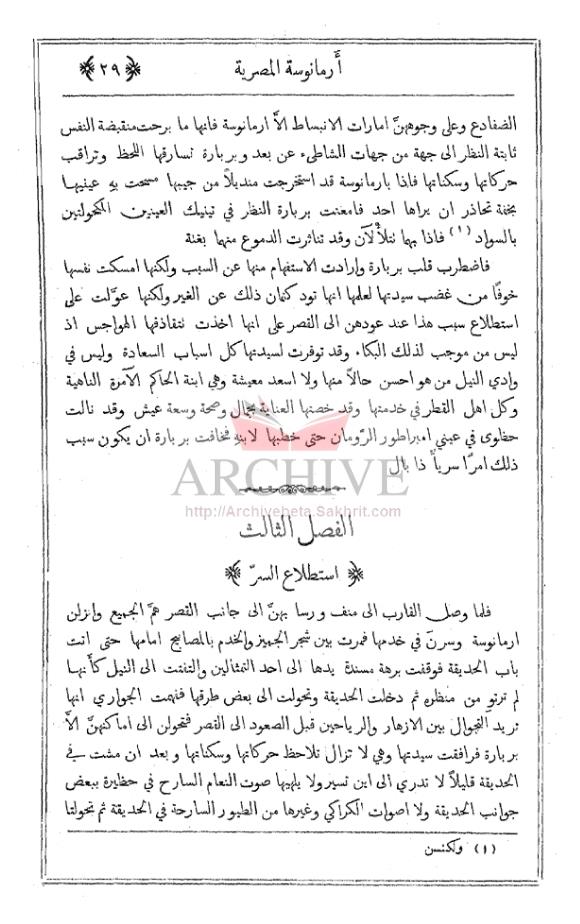 أرمانوسة المصرية
﴿٢٩﴾
الضفادع وعلى وجوههنَّ امارات الانبساط الاَّ ارمانوسة فانها ما برحت منقبضة النفس
ثابتة النظر الى جهة من جهات الشاطىء عن بعد وبربارة تسارقها اللحظ وتراقب
حركاتها وسكناتها فاذا بارمانوسة قد استخرجت منديلاً من جيبها مسحت به عينيها
بخفة تحاذر ان يراها احد فامعنت بربارة النظر في تينيك العينين المكحولتين
بالسواد (١) فاذا بهما تتلألآن وقد تناثرت الدموع منهما بغتة
فاضطرب قلب بربارة وارادت الاستفهام منها عن السبب ولكنها امسكت نفسها
خوفًا من غضب سيدتها لعلمها انها تود كتمان ذلك عن الغير ولكنها عوَّلت على
استطلاع سبب هذا عند عودهن الى القصر على انها اخذت تتقاذفها الهواجس اذ
ليس من موجب لذلك البكاء وقد توفرت لسيدتها كل اسباب السعادة وليس في
وادي النيل من هو احسن حالاً منها ولا اسعد معيشة وهي ابنة الحاكم الآمرة الناهية
وكل اهل القطر في خدمتها وقد خصتها العناية بجمال وصحة وسعة عيش وقد نالت
حظوى في عيني امبراطور الرّومان حتى خطبها لابنه فخافت بربارة ان يكون سبب
ذلك امرًا سريًّا ذا بال
ARCHIVE
http://Archivebeta.Sakhrit.com
الفصل الثالث
﴿ استطلاع السرّ ﴾
فلما وصل القارب الى منف ورسا بهنَّ الى جانب القصر همَّ الجميع وانزلن
ارمانوسة وسرنَ في خدمتها فمرت بين شجر الجميز والخدم بالمصابيح امامها حتى اتت
باب الحديقة فوقفت برهة مسندة يدها الى احد التمثالين والتفتت الى النيل كأنها
لم ترتوِ من منظره ثم دخلت الحديقة وتحولت الى بعض طرقها ففهمت الجواري انها
تريد التجوال بين الازهار والرياحين قبل الصعود الى القصر فتحولن الى اماكنهنَّ الاَّ
بربارة فرافقت سيدتها وهي لا تزال تلاحظ حركاتها وسكناتها وبعد ان مشت في
الحديقة قليلاً لا تدري الى اين تسير ولا يلهيها صوت النعام السارح في حظيرة ببعض
جوانب الحديقة ولا اصوات الكراكي وغيرها من الطيور السارحة في الحديقة ثم تحولتا
(١) ولكنسن